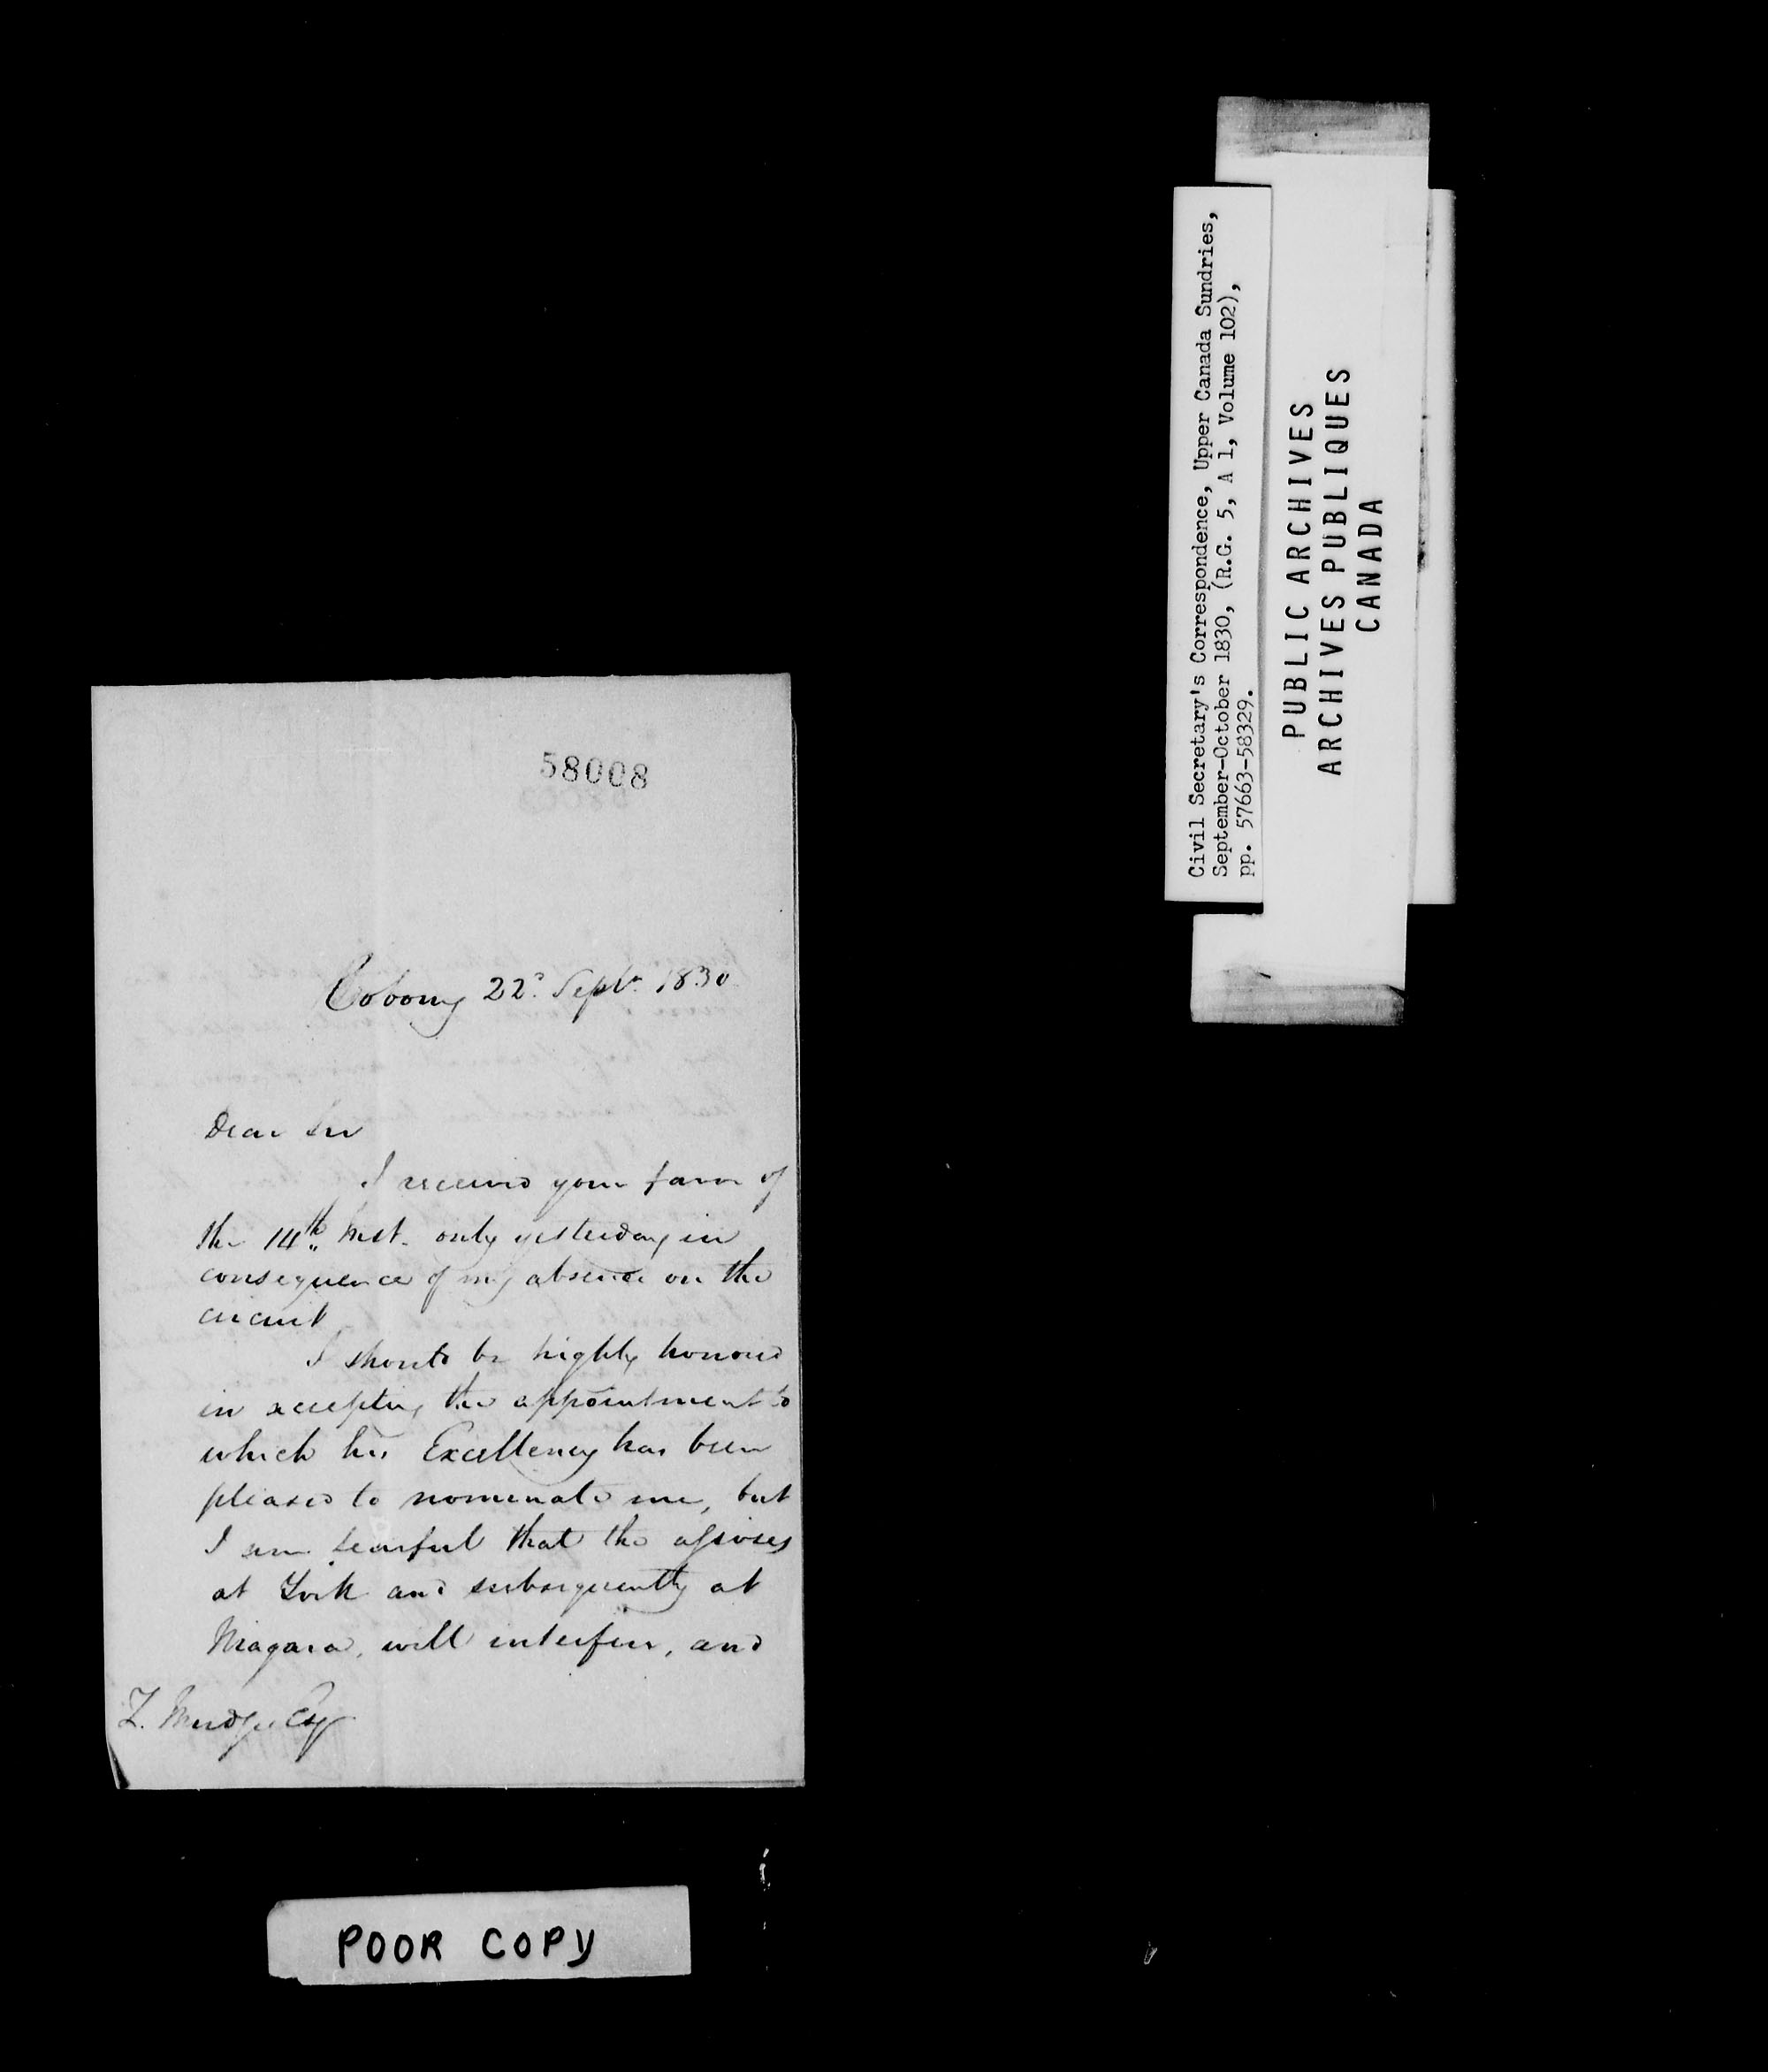 58008
Cobourg 22d. Septr. 1830
Dear Sir
I received your favor of
the 14th Inst. only yesterday in
consequence of my absence on the
circuit
I should be highly honored
in accepting the appointment to
which his Excellency has been
pleased to nominate me, but
I am fearful that the assizes
at York and subsequently at
Niagara, will interfere, and
Z. Mudge Esqr
POOR COPY
Civil Secretary's Correspondence, Upper Canada Sundries,
September-October 1830, (R.G. 5, A 1, Volume 102),
pp. 57663-58329.
PUBLIC ARCHIVES
ARCHIVES PUBLIQUES
CANADA